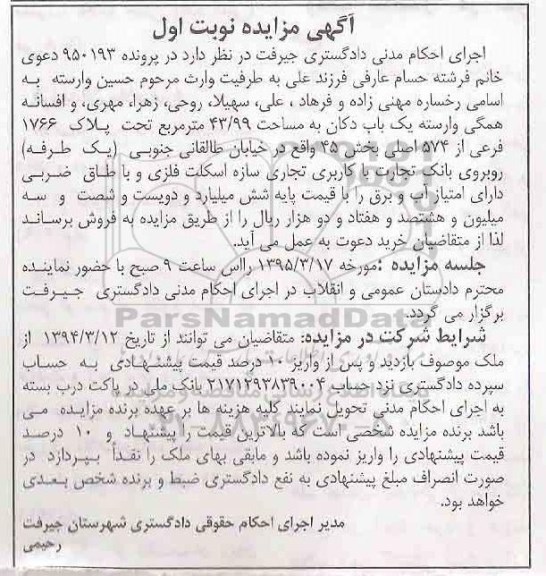 آگهی مزایده نوبت اول
اجرای احکام مدنی دادگستری جیرفت در نظر دارد در پرونده ۹۵۰۱۹۳ دعوی
خانم فرشته حسام عارفی فرزند علی به طرفیت وراث مرحوم حسین وارسته به
اسامی رخساره مهنی زاده و فرهاد ، علی، سهیلا، روحی، زهرا، مهری، و افسانه
همگی وارسته یک باب دکان به مساحت ۴۳/۹۹ مترمربع تحت پلاک ۱۷۶۶
فرعی از ۵۷۴ اصلی بخش ۴۵ واقع در خیابان طالقانی جنوبی (یک طرفه)
روبروی بانک تجارت با کاربری تجاری سازه اسکلت فلزی و با طاق ضربی
دارای امتیاز آب و برق را با قیمت پایه شش میلیارد و دویست و شصت و سه
میلیون و هشتصد و هفتاد و دو هزار ریال را از طریق مزایده به فروش برساند
لذا از متقاضیان خرید دعوت به عمل می آید.
جلسه مزایده :مورخه ۱۳۹۵/۳/۱۷ رااس ساعت ۹ صبح با حضور نماینده
محترم دادستان عمومی و انقلاب در اجرای احکام مدنی دادگستری جیرفت
برگزار می گردد.
ParsNamadData
شرایط شرکت در مزایده: متقاضیان می توانند از تاریخ ۱۳۹۴/۳/۱۲ از
ملک موصوف بازدید و پس از واریز ۱۰ درصد قیمت پیشنهادی به حساب
سپرده دادگستری نزد حساب ۲۱۷۱۲۹۳۸۳۹۰۰۴ بانک ملی در پاکت درب بسته
به اجرای احکام مدنی تحویل نمایند کلیه هزینه ها بر عهده برنده مزایده می
۰۲۱-۸۸۳۴۹۶۷۰-۵
باشد برنده مزایده شخصی است که بالاترین قیمت را پیشنهاد و ۱۰ درصد
قیمت پیشنهادی را واریز نموده باشد و مابقی بهای ملک را نقداً بپردازد در
صورت انصراف مبلغ پیشنهادی به نفع دادگستری ضبط و برنده شخص بعدی
خواهد بود.
مدیر اجرای احکام حقوقی دادگستری شهرستان جیرفت
رحیمی